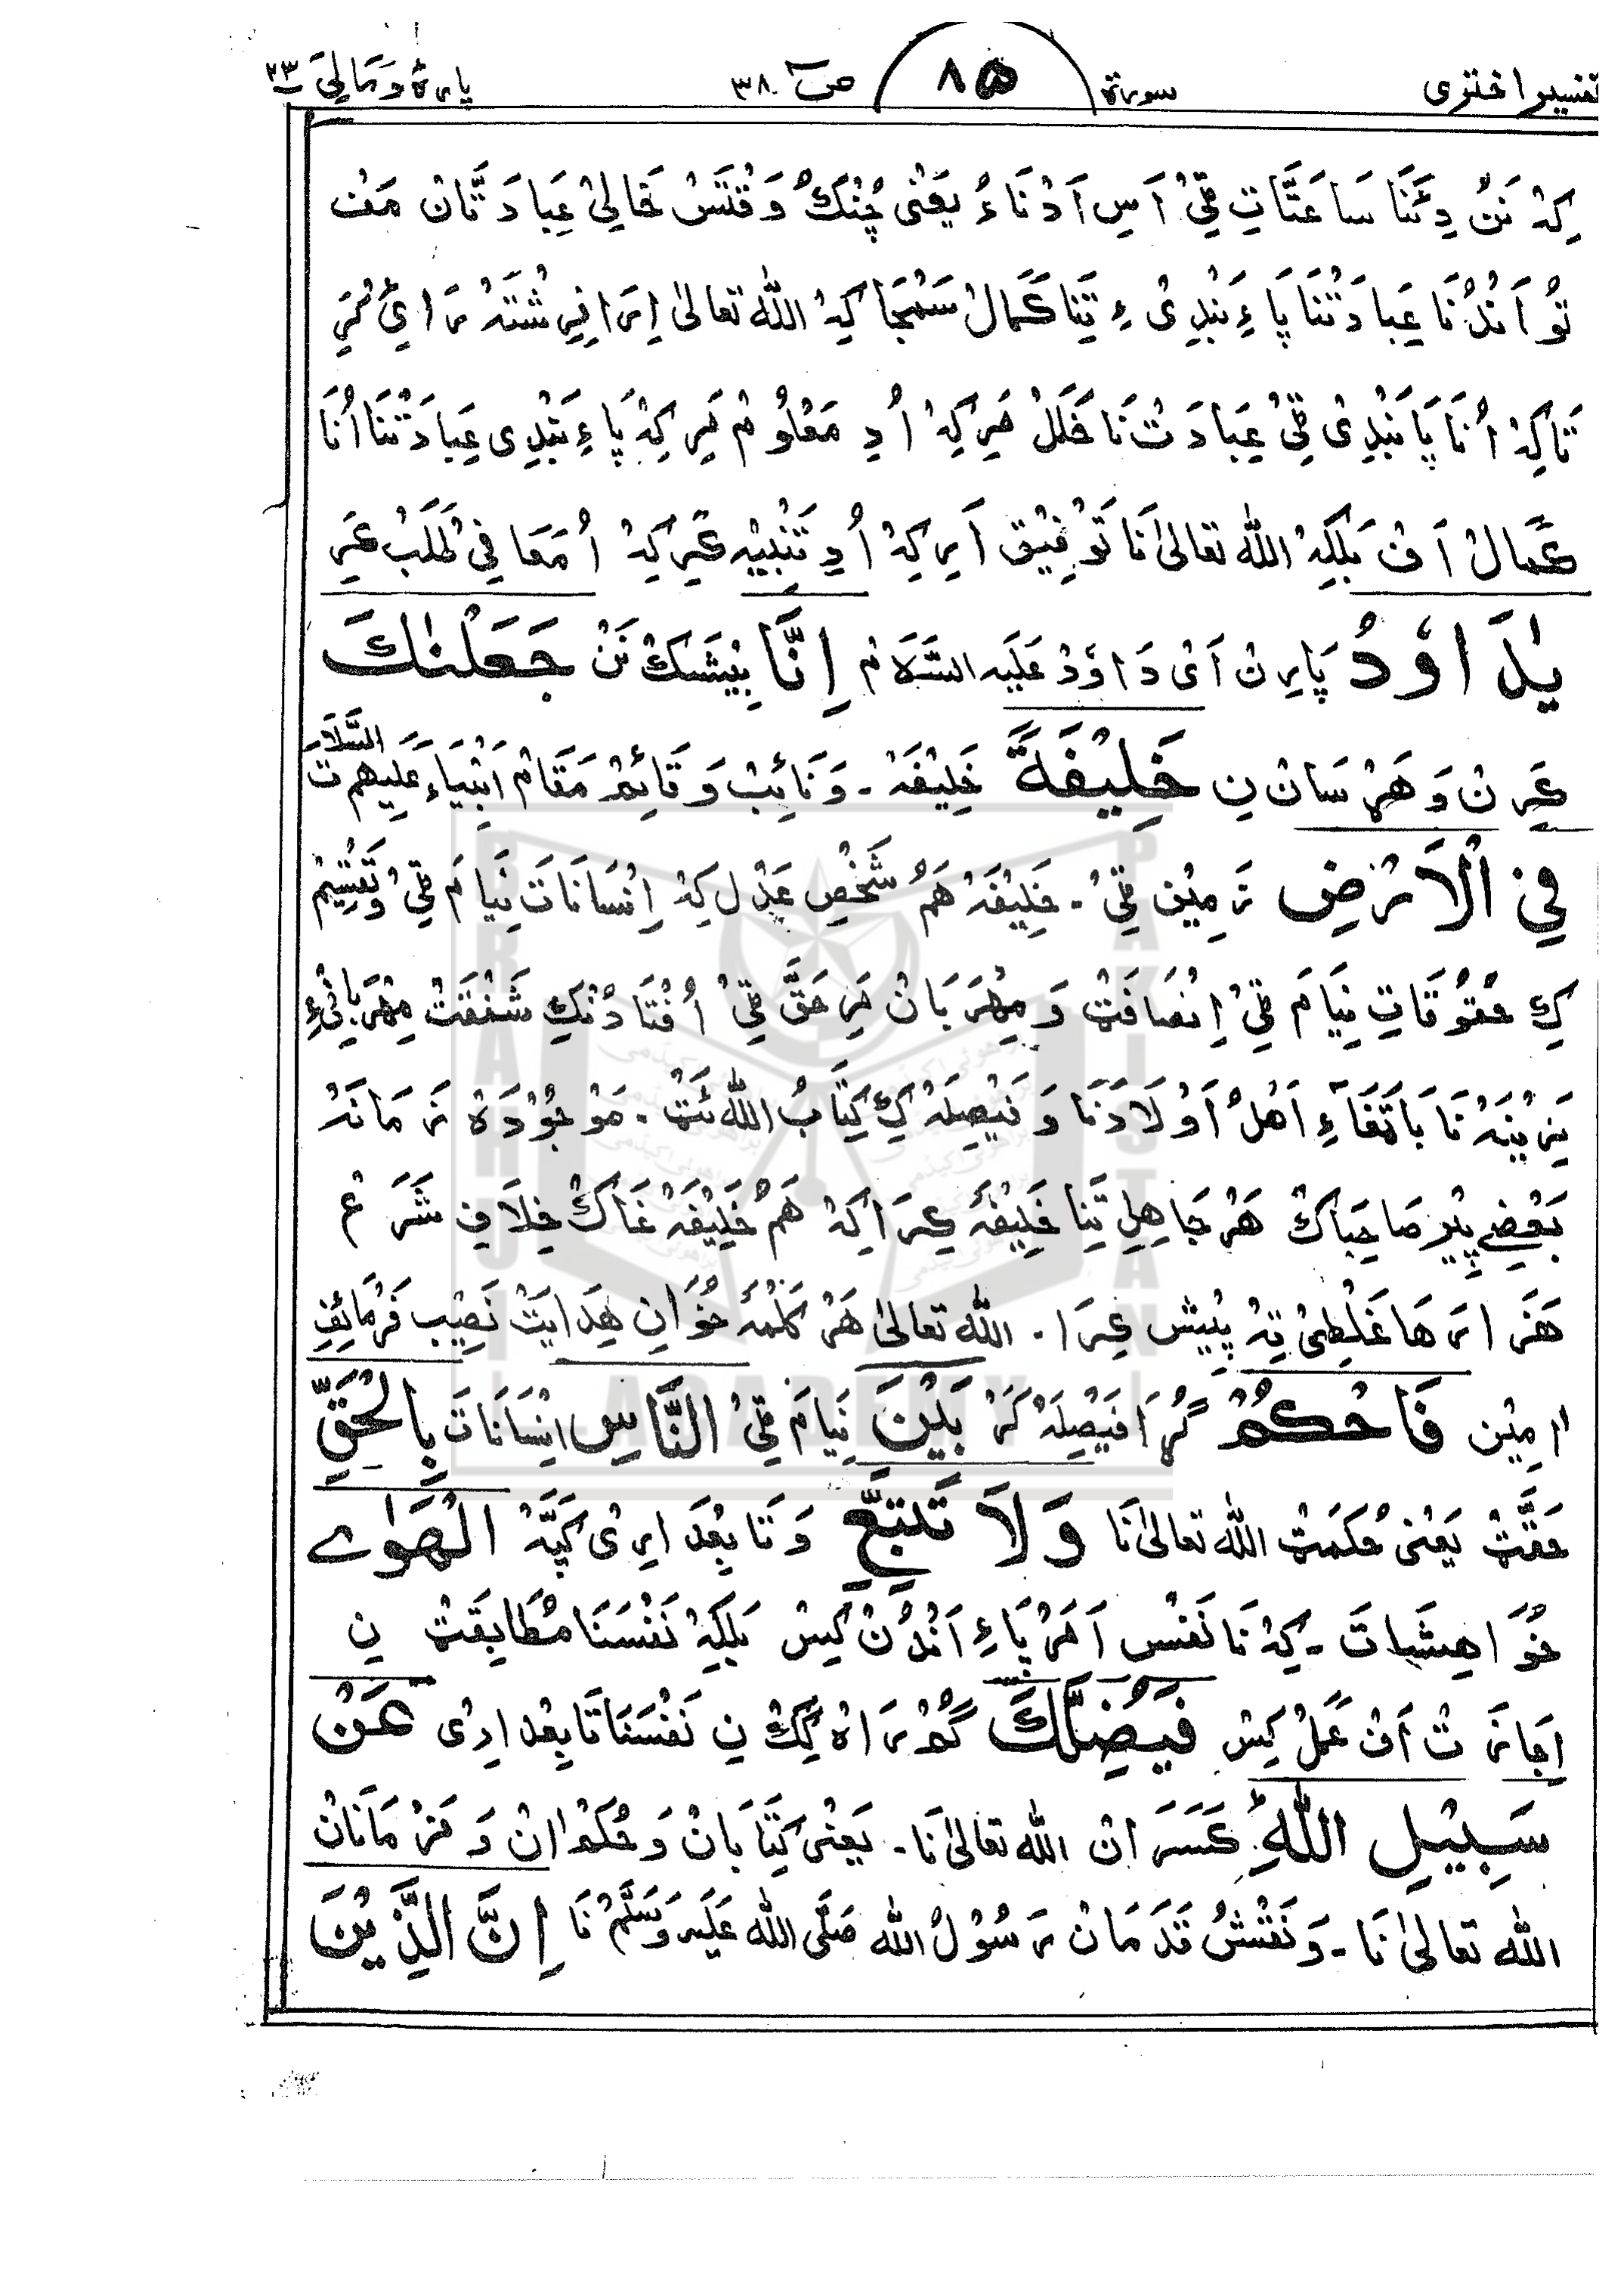 تفسیر اختری سورۃ ۸۵ صٓ ۳۸ پارہ وَمَالِیَ ۲۳
کِہ نَنْ دِئنَا سَاعَتَاتِ ٹِیْ اَسِ اَدْنَاءُ یَعْنی چُنْکُ وَقْتَسْ خَالِیْ عِبَادَتَّانْ مَفْ
تُو اَنْدُنَا عِبَادَتْنَا پَاءِبَنْدِیْ ءِ تِنَا کَمَالْ سَمْجَا کِہْ اللہ تعالیٰ اِرَا فِرِشْتَہْ رَاہِیْ کَرِ
تَاکِہْ اُنَا پَابَنْدِیْ ٹِیْ عِبَادَتْ نَا خَلَلْ مَرِ کِہْ اُدِ مَعْلُومْ مَرِ کِہْ پَاءِبَنْدِی عِبَادَتْنَا اُنَا
کَمَالْ اَفْ بَلْکِہْ اللہ تعالیٰ نَا تَوْفِیْق اَرِ کِہْ اُدِ تَنْبِیْہ کَرِ کِہْ اُ مَعَافِیْ طَلَبْ کَرِ
یٰدَاوٗدُ پَارِنْ اَیْ دَاوٗدْ عَلَیہ السَّلَامْ اِنَّا بِیْشَکْ نَنْ جَعَلْنٰكَ
کَرِنْ وَ ھَرْسَانْ نِ خَلِیْفَةً خَلِیْفَہْ ۔ وَنَائِبْ وَ قَائِمْ مَقَامْ اَنْبِیَاءِ عَلیھم السَّلَامَتَ
فِی الْاَرْضِ زَمِیْن ٹِیْ ۔ خَلِیْفَہْ ھَمْ شَخْصِ عَدْل کِہْ اِنْسَانَاتَ نِیَامَ ٹِیْ وَتَقْسِیْمْ
کِ حُقُوقَاتِ نِیَامَ ٹِیْ اِنْصَافَٹْ وَ مِھْرَبَانْ مَرِ حَقَّ ٹِیْ اُفْتَا دُنْکِ شَفْقَتْ مِھْرَبَانِیْءِ
بَعْضِے پِیْر صَاحِبَاکْ ھَرْ جَاھِلِ تِنَا خَلِیْفَہْ کِرَا کِہْ ھَمْ خَلِیْفَہْ غَاکْ خِلَافِ شَرَعْ
ھَزَارَھَا غَلْطِیْ تِہْ پِیْش کِرَا ۔ اللہ تعالیٰ ھَرْ کَلْمَہْ خُوَانِ ھِدَایَتْ نَصِیْب فَرْمَائِفِ
اٰمِیْن فَاحْكُمْ گُڑَا فَیْصِلَہْ کَرْ بَیْنَ نِیَامَ ٹِیْ النَّاسِ اِنْسَانَاتَ بِالْحَقِّ
حَقَّٹْ یَعْنی حُکمَٹْ اللہ تعالیٰ نَا وَلَا تَتَّبِعِ وَ تَابِعْدَارِیْ کَپَّہْ الْهَوٰى
خُوَاھِشَاتَ ۔ کِہْ نَا نَفْس اَمْرْ پَاءِ اَنْدُنْ کِیسْ بَلْکِہْ نَفْسَنَا مُطَابِقَٹْ نِ
اِجَازَتْ اَفْ عَمَلْ کِیسْ فَیُضِلَّكَ گُمْ رَاہْ کِکْ نِ نَفْسَنَا تَابِعْدَارِیْ عَنْ
سَبِیْلِ اللّٰهِ کَسَرَانْ اللہ تعالیٰ نَا ۔ یَعْنی کِتَابَانْ وَ حُکْمَانْ وَ فَرْمَانَانْ
اللہ تعالیٰ نَا ۔ وَ نَقْشُ قَدَمَانْ رَسُوْلُ اللہ صَلَّی اللہ عَلَیہ وَسَلَّمْ نَا اِنَّ الَّذِیْنَ
BRAHUI ACADEMY PAKISTAN